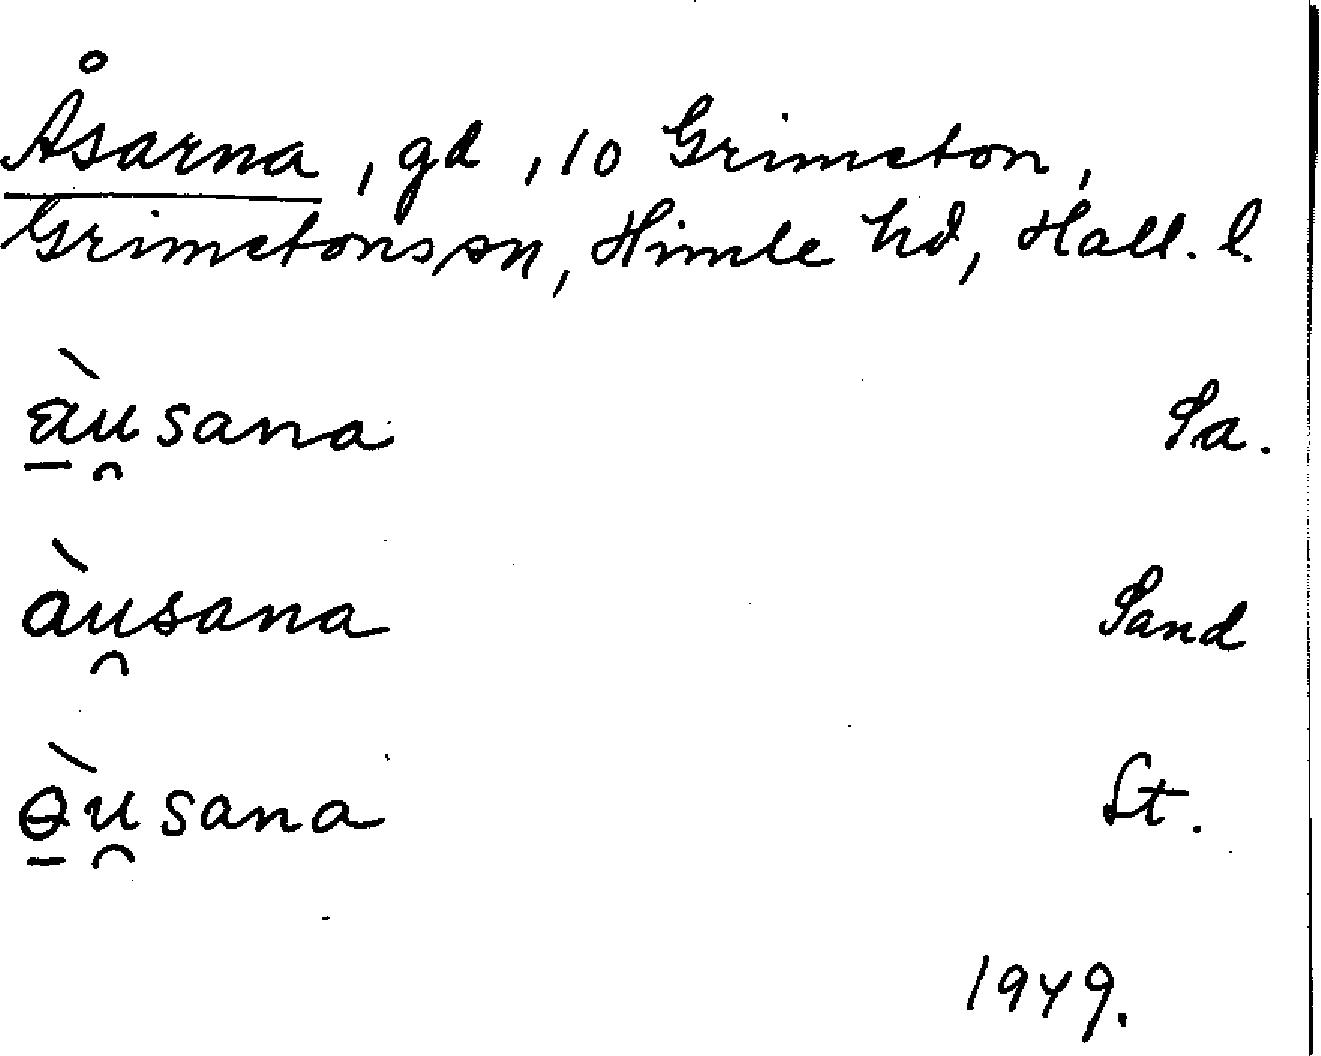 Åsarna, gd, 10 Grimeton,
Grimetons sn, Himle hd, Hall. l.
à̱u̯sana Sa.
àu̯sana Sand
ɵ̱̀u̯sana St.
1949.